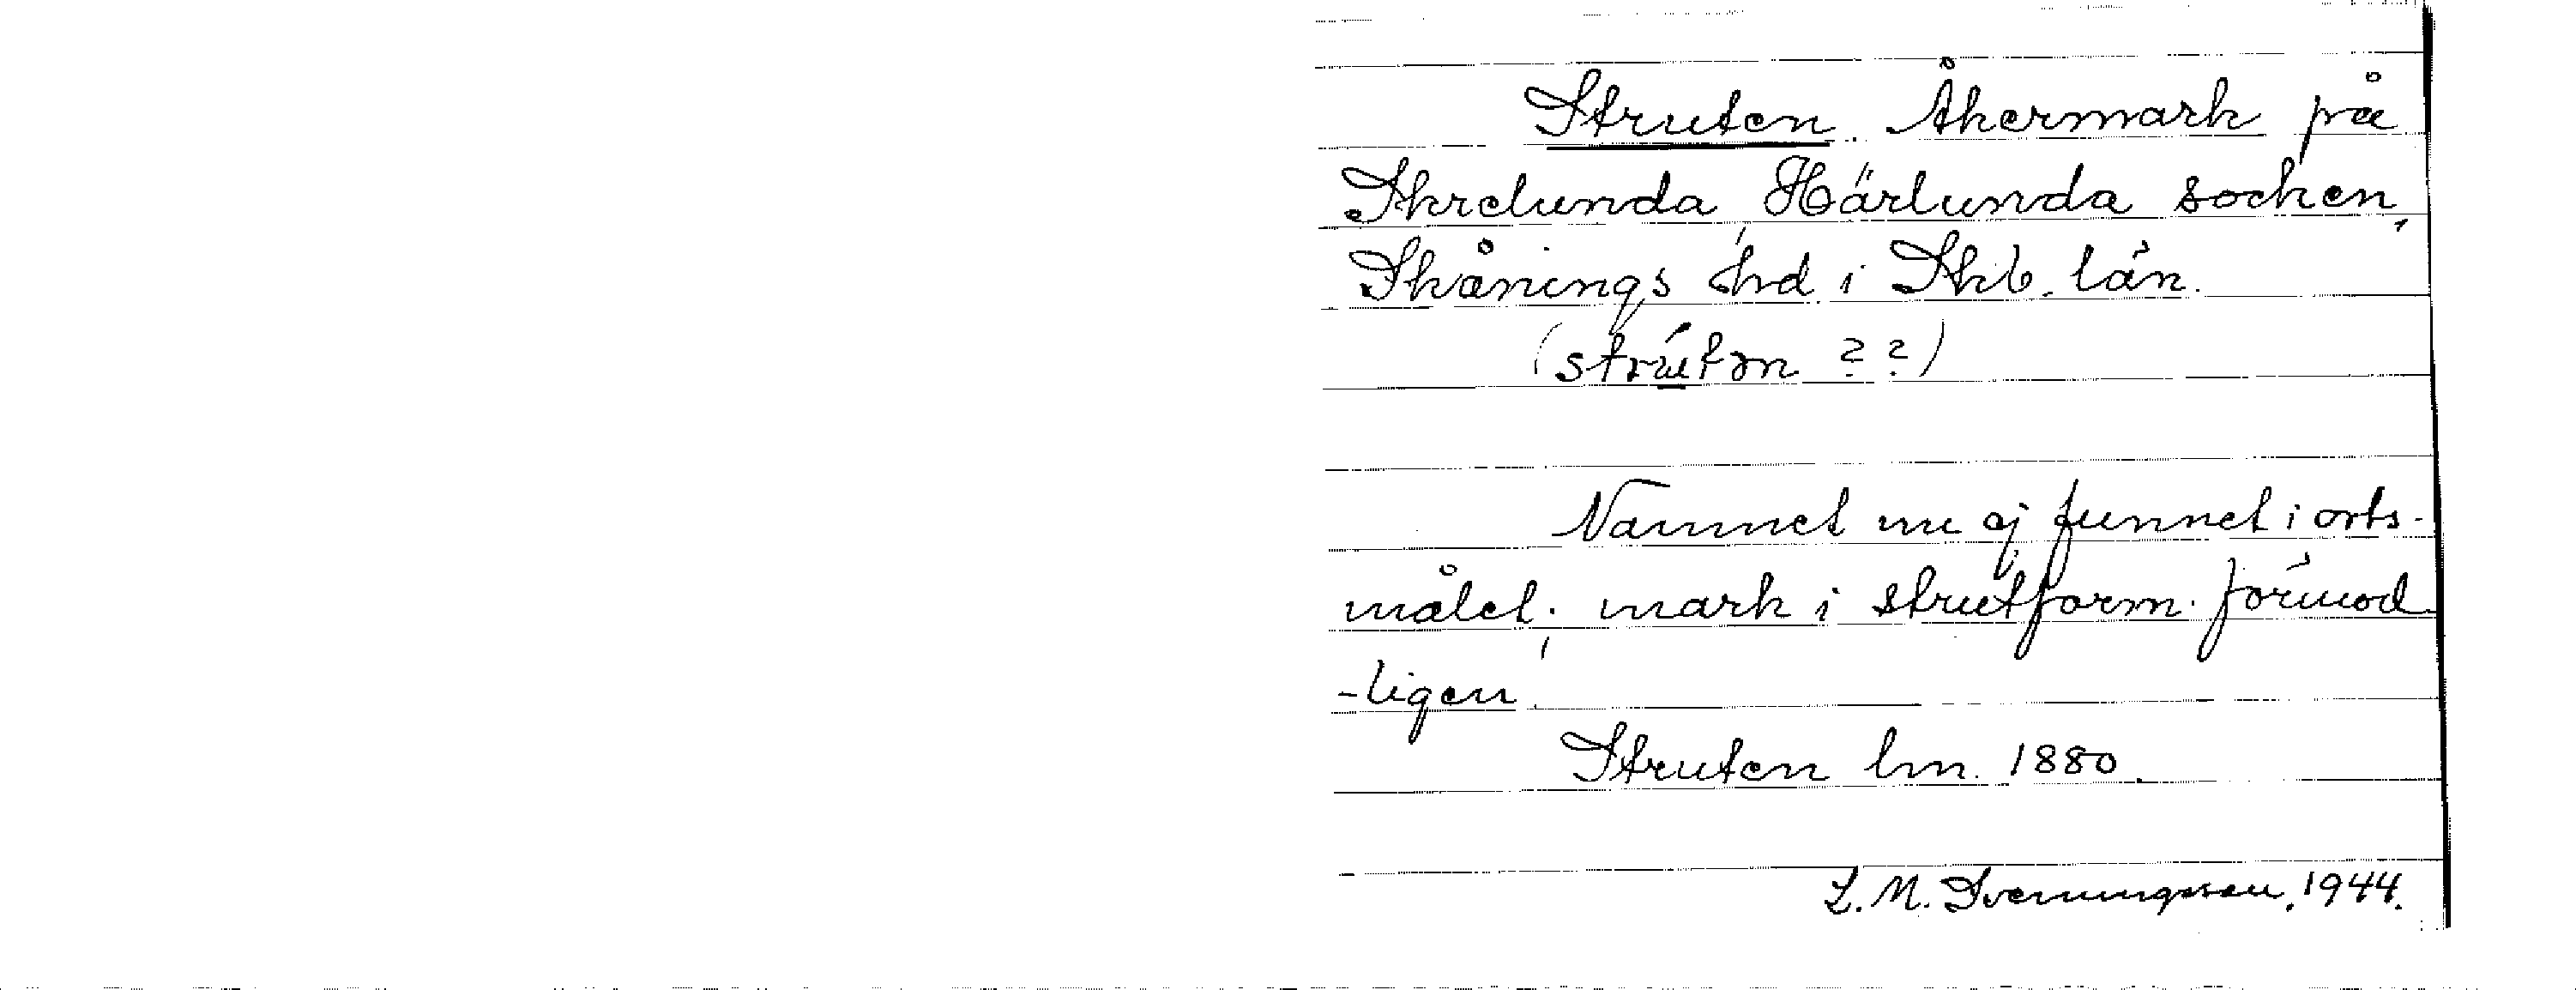 Struten. Åkermark på
Skrelunda, Härlunda socken,
Skånings hd i Skb. län.
(strútən ??)
Namnet nu ej funnet i orts-
målet; mark i strutform förmod
-ligen.
Struten lm. 1880.
L. M. Svenungsson, 1944.